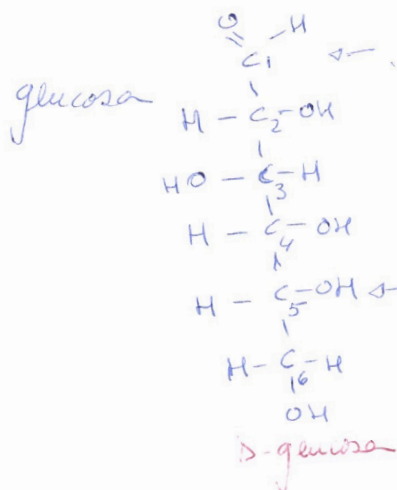 O H
C1
glucosa
H - C2 - OH
HO - C3 - H
H - C4 - OH
H - C5 - OH
H - C6 - H
OH
D-glucosa